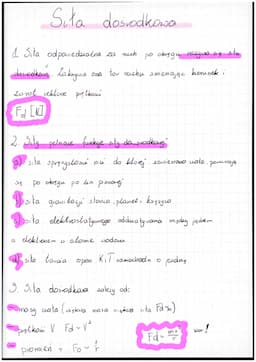 Siła dośrodkowa
1. Siła odpowiedzialna za ruch po okręgu nazywa się siłą
dośrodkową. Zakrzywia ona tor ruchu zmieniając kierunek i
zwrot wektora prędkości
Fd [N]
2. Siły pełniące funkcję siły dośrodkowej
a) siła sprężystości nici do której zawieszono
się po okręgu po linii
b) siła grawitacji słońce, planet - księżyca
c) siła elektrostatycznego oddziaływania między jądrem
a elektronem w atomie wodoru
d) siła tarcia opon K, T samochodu o jezdnię
3. Siła dośrodkowa zależy od:
- masy ciała (większa masa większa siła Fd~m)
- prędkości V Fd~V²
- promień r Fd~1/r
Fd=mv²/r